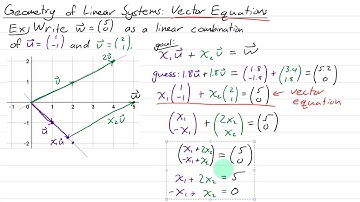 Geometry of Linear Systems: Vector Equation
Ex) Write w⃗ = (5 0) as a linear combination
of u⃗ = (1 -1) and v⃗ = (2 1).
goal:
x₁u⃗ + x₂v⃗ = w⃗
guess: 1.8u⃗ + 1.8v⃗ = (1.8 -1.8) + (3.4 1.8) = (5.2 0)
x₁(1 -1) + x₂(2 1) = (5 0) ← vector
equation
(x₁ -x₁) + (2x₂ x₂) = (5 0)
(x₁+2x₂ -x₁+x₂) = (5 0)
x₁ + 2x₂ = 5
-x₁ + x₂ = 0
2v⃗
2
v⃗
1
w⃗
-1 0 1 2 3 4 5
u⃗
x₂v⃗
-1
x₁u⃗
-2